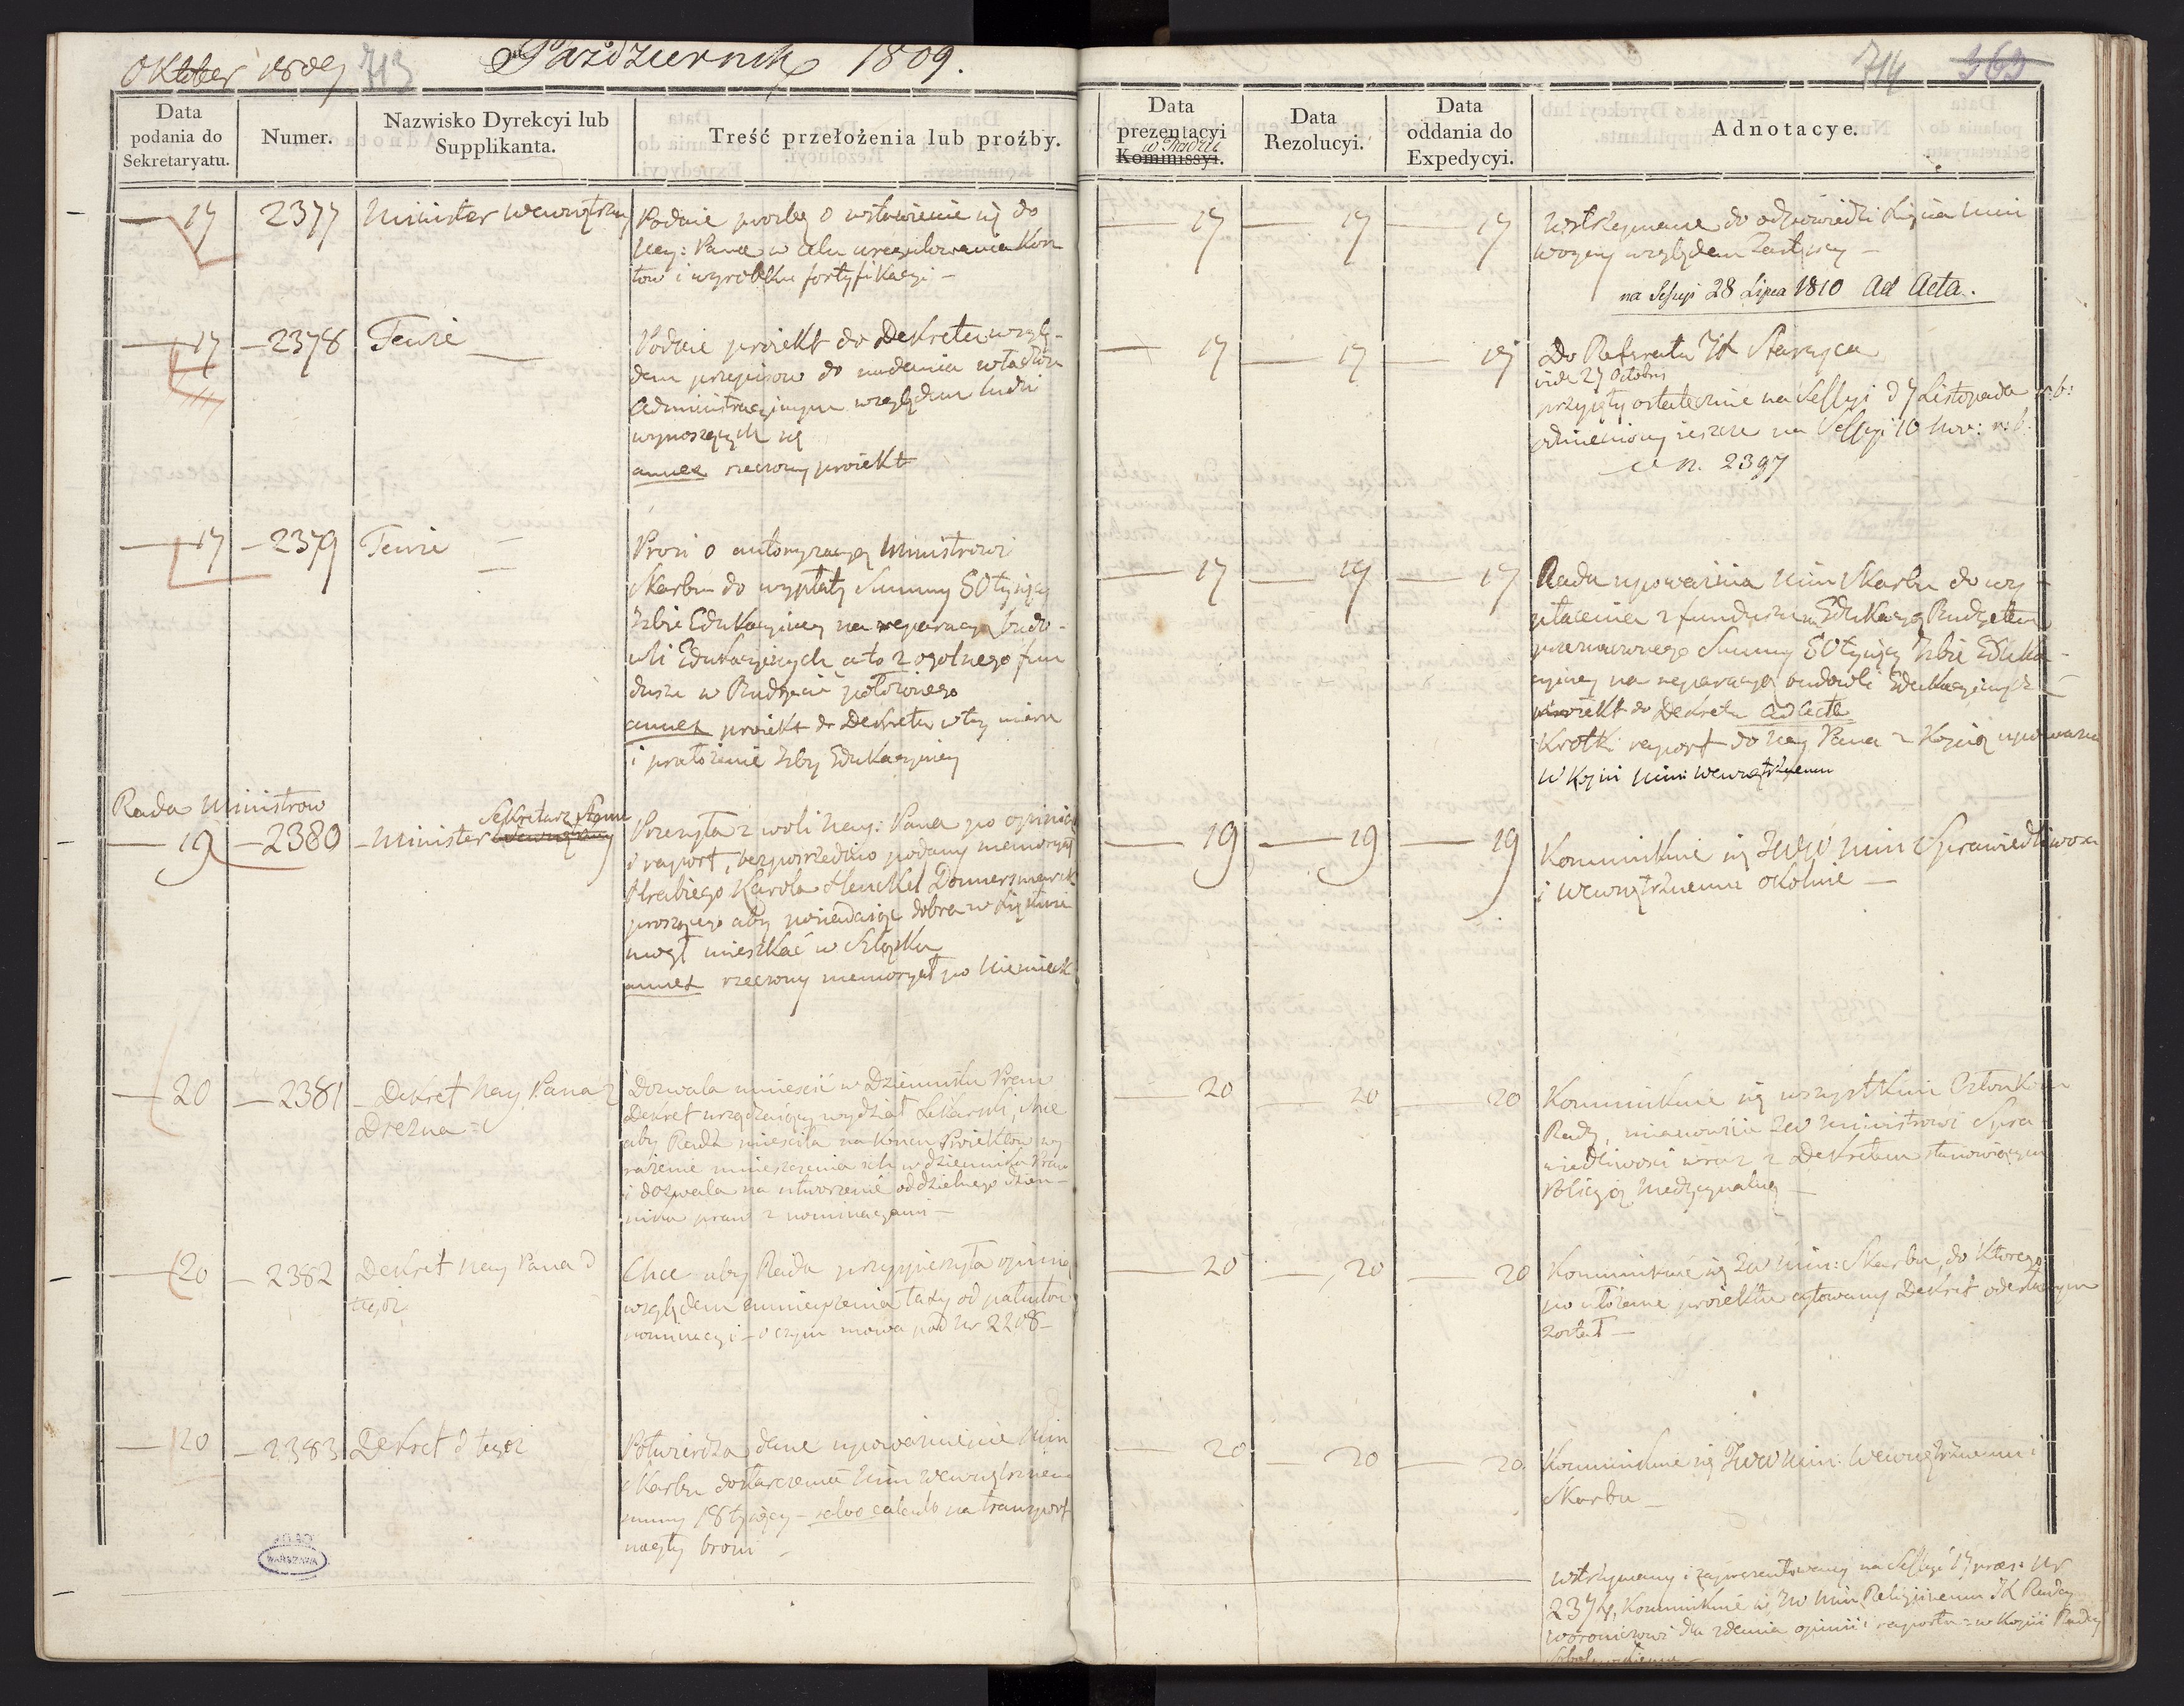 Oktober 1809 713 Październik 1809.
Data podania do Sekretaryatu.
Numer.
Nazwisko Dyrekcyi lub Supplikanta.
Treść przełożenia lub proźby.
17 2377 Minister Wewnętrzny
Podaie prozbę o wstawienie się do
Nay: Pana w celu uregulowania Kosz
tow i wyrobku fortyfikacyi —
17 — 2378 Tenże —
Podaie proiekt do Dekretu wzglę-
dem przepisow do nadania władzom
Administracyinym względem ludzi
wynoszących się
annex rzeczony proiekt
17 — 2379 Tenże —
Prosi o autoryzacyą Ministrowi
Skarbu do wypłaty Summy 80 tysięcy
Izbie Edukacyiney na reperacyą budo-
wli Edukacyinych a to z ogolnego fun
duszu w Budżecie położonego
annex proiekt do Dekretu w tey mierze
i przełożenie Izby Edukacyiney
Rada Ministrow
19 — 2380 — Minister Sekretarz Stanu
Przesyła z woli Nay: Pana po opinią
i raport, bezpośrzednio podany memoryał
Hrabiego Karola Henckel Donnersmarck
proszącego aby posiadaiąc dobra w Xięstwie
mogł mieszkać w Szląsku
annex rzeczony memoryał po Niemieck
20 — 2381 — Dekret Nay Pana z
Drezna
Dozwala umiescić w Dzienniku Praw
Dekret urządzaiący wydział Lekarski, chce
aby Rada miesciła na koncu Proiektow wy
rażenie umieszczenia ich w dzienniku Praw
i dozwala na utworzenie oddzielnego dzien-
nika praw z nominacyami —
20 — 2382 Dekret Nay Pana d
tegoż
Chce aby Rada przyspieszyła opinią
względem zmnieyszenia taxy od patentow
nominacyi — o czym mowa pod Nr 2208 —
20 — 2383 Dekret d tegoż
Potwierdza dane upoważnienie Min
Skarbu dostarczenia Min Wewnętrznemu
summy 18 tysięcy — salvo calculo na transport
nagły broni —
WARSZAWA
714 363
Data prezentacyi w Radzie Kommissyi.
Data Rezolucyi.
Data oddania do Expedycyi.
Adnotacye.
17 — 17 — 17
Wstrzymane do odpowiedzi Xięcia Min
Woyny względem Zastępcy —
na Sessyi 28 Lipca 1810 Ad Acta.
17 — 17 — 17
Do Referatu JX Staszyca
vide 27 Octobris
przyięty ostatecznie na Sessyi d 7 Listopada r. b:
odmieniony ieszcze na Sessyi 10 Nov: r. b.
N. 2397
17 — 17 — 17
Rada upoważnia Min Skarbu do wy
płacenia z funduszu Edukacyą Budżetem
przeznaczonego Summy 80 tysięcy Izbie Eduka-
cyiney na reperacyą budowli Edukacyinych —
proiekt do Dekretu ad Acta
Krotki raport do Nay Pana z kopią upoważn
w kopii Min: Wewnętrznemu
19 — 19 — 19
Kommunikuie się JWW Min Sprawiedliwosci
i Wewnętrznemu okolnie —
20 — 20 — 20
Kommunikuie się wszystkim Członkom
Rady, mianowicie JW Ministrowi Spra
wiedliwosci wraz z Dekretem stanowiącym
Policyią Medycynalną —
20 — 20 — 20
Kommunikuie się JW Min: Skarbu, do ktorego
po ułożenie proiektu cytowany Dekret odesłanym
został —
20 — 20 — 20
Kommunikuie się JWW Min: Wewnętrznemu i
Skarbu —
Wstrzymany i zaprezentowany na Sessyi 17 praes: Nr
2374, kommunikuie się JW Min Religiinemu JX Radcy
Woroniczowi dla zdania opinii i raportu — w kopii Radcy